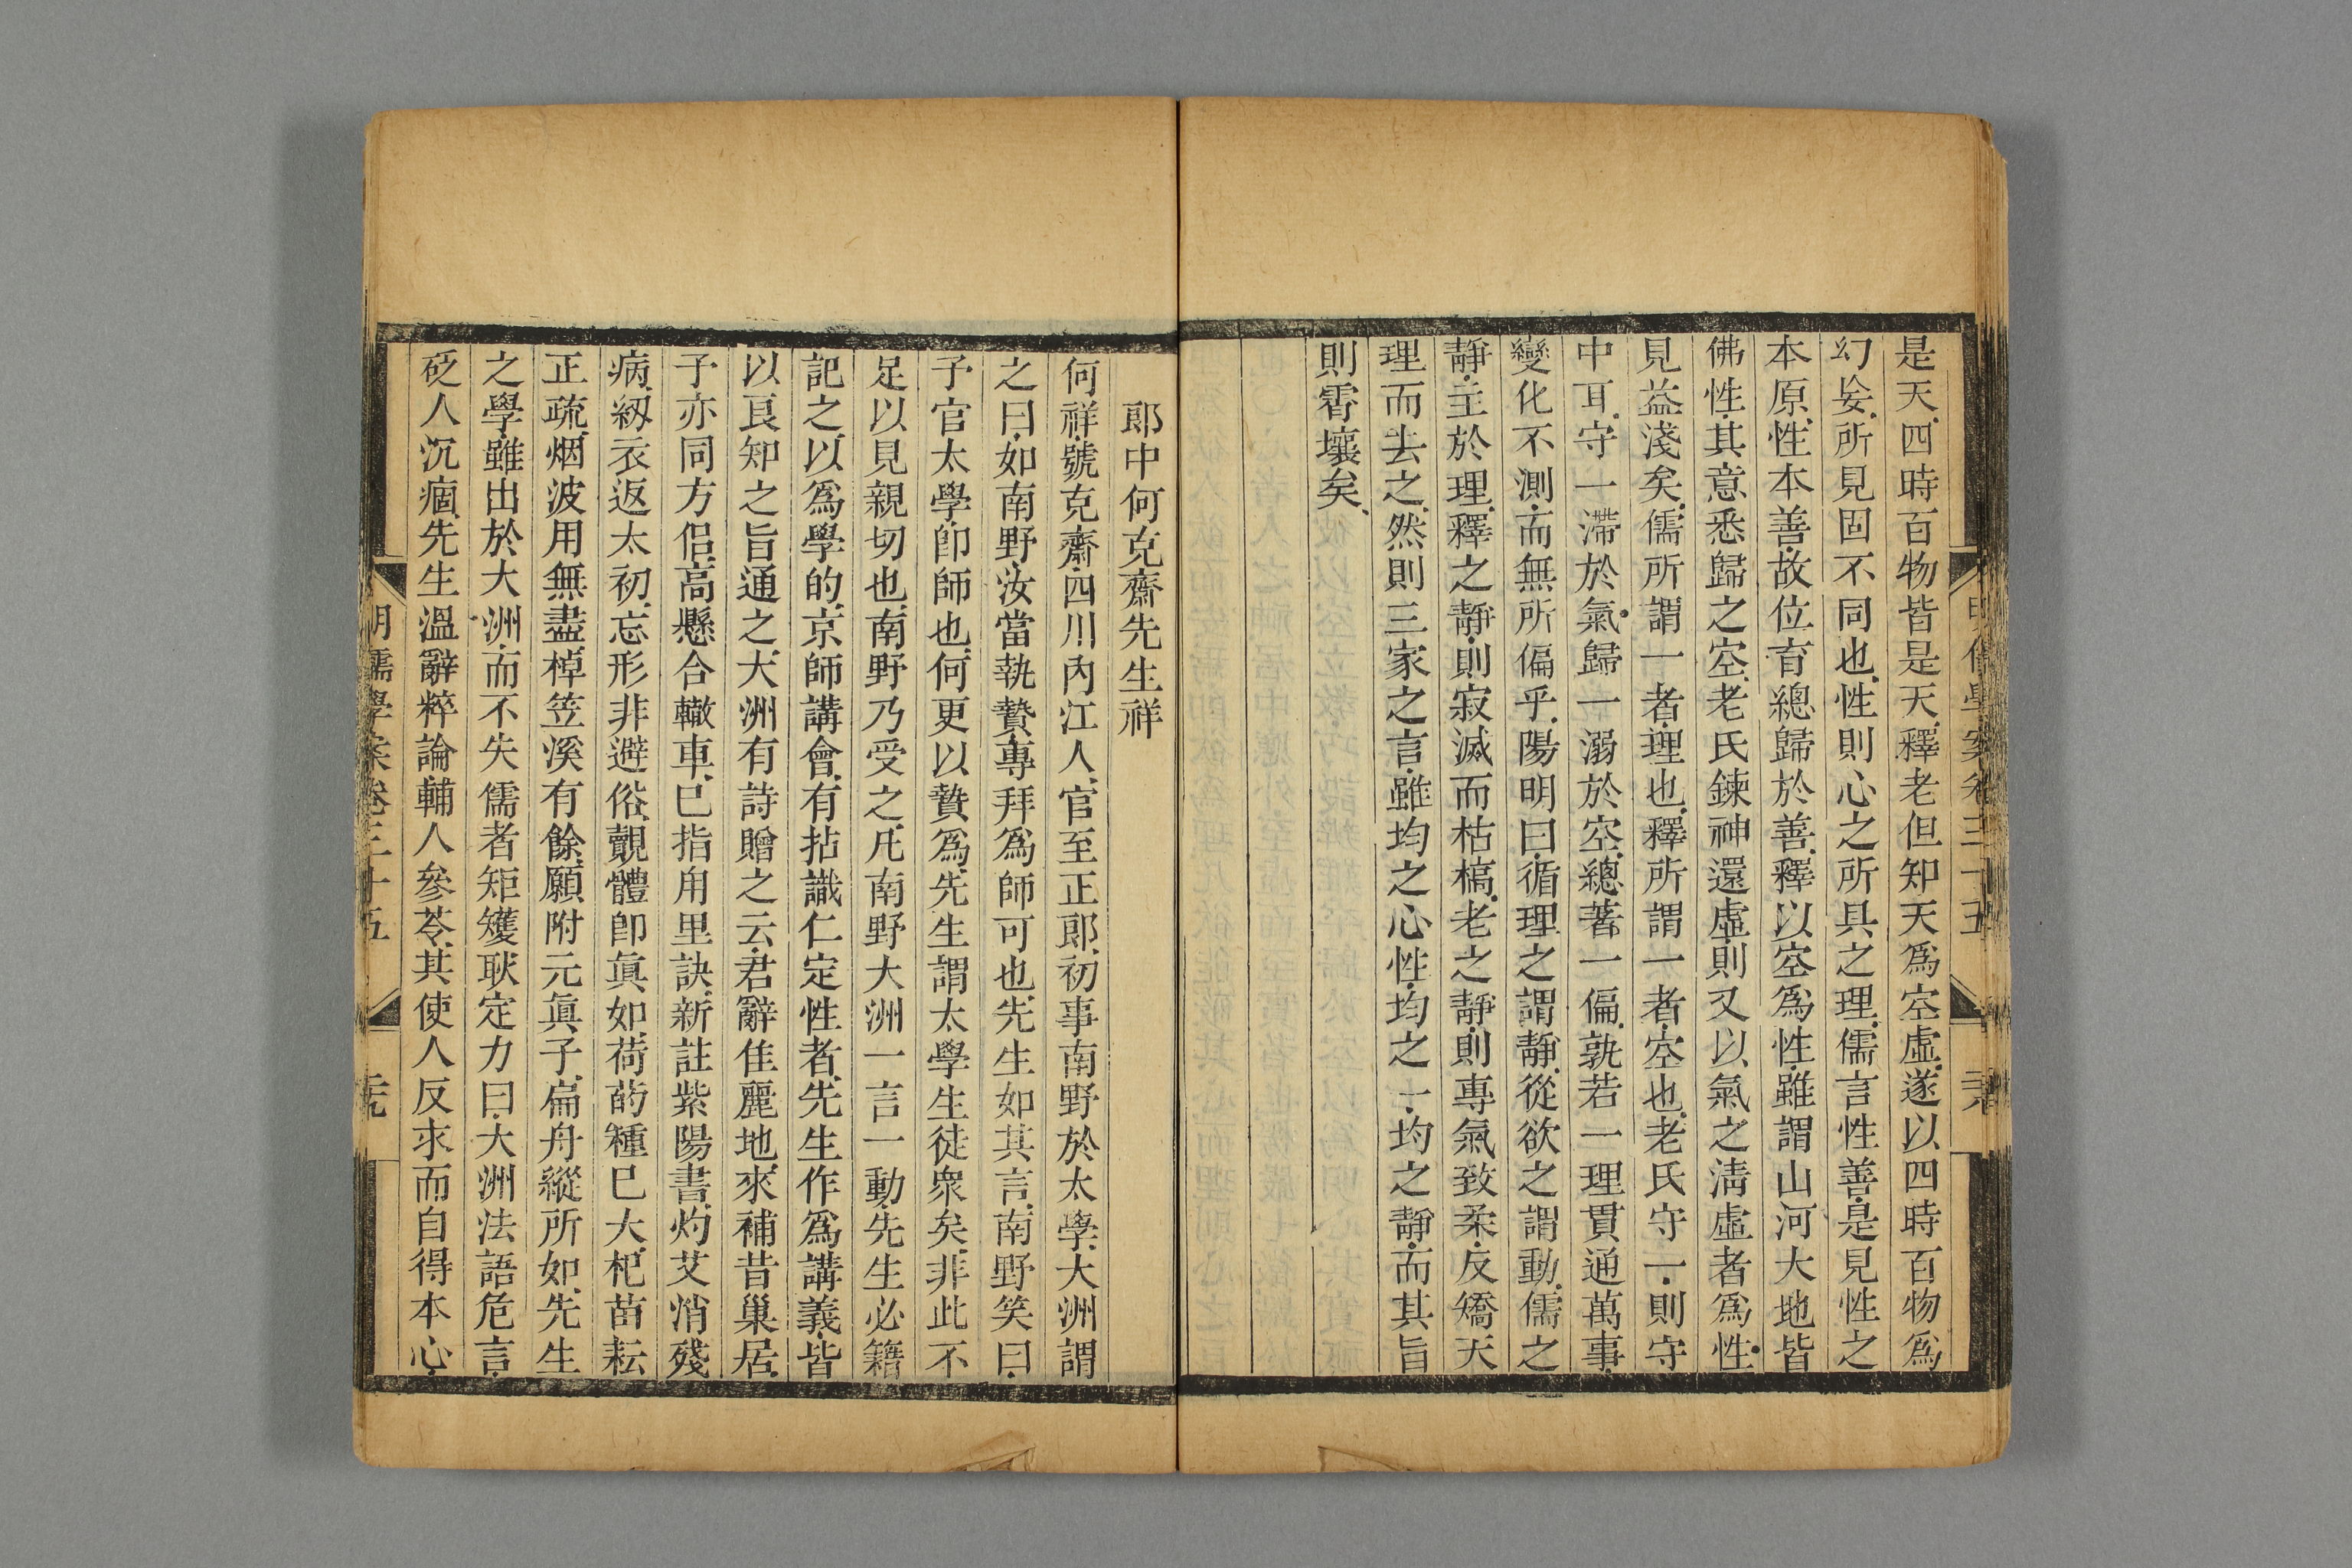 是天四時百物皆是天釋老但知天爲空虛遂以四時百物爲
幻妄所見固不同也性則心之所具之理儒言性善是見性之
本原性本善故位育總歸於善釋以空爲性雖謂山河大地皆
佛性其意悉歸之空老氏鍊神還虛則又以氣之清虛者爲性
見益淺矣儒所謂一者理也釋所謂一者空也老氏守一則守
中耳守一滯於氣歸一溺於空總著一偏孰若一理貫通萬事
變化不測而無所偏乎陽明曰循理之謂靜從欲之謂動儒之
靜主於理釋之靜則寂滅而枯槁老之靜則專氣致柔反矯天
理而去之然則三家之言雖均之心性均之一均之靜而其旨
則霄壤矣
郎中何克齋先生祥
何祥號克齋四川内江人官至正郎初事南野於太學大洲謂
之曰如南野汝當執贄專拜爲師可也先生如其言南野笑曰
予官太學卽師也何更以贄爲先生謂太學生徒衆矣非此不
足以見親切也南野乃受之凡南野大洲一言一動先生必籍
記之以爲學的京師講會有拈識仁定性者先生作爲講義皆
以良知之旨通之大洲有詩贈之云君辭佳麗地來補昔巢居
予亦同方侶高懸合轍車已指用里訣新註紫陽書灼艾消殘
病紉衣返太初忘形非避俗覿體卽眞如荷葯種已大杞苗耘
正疏烟波用無盡棹笠溪有餘願附元眞子扁舟縱所如先生
之學雖出於大洲而不失儒者矩矱耿定力曰大洲法語危言
砭人沉痼先生溫辭粹論輔人參苓其使人反求而自得本心
明儒學案卷三十五